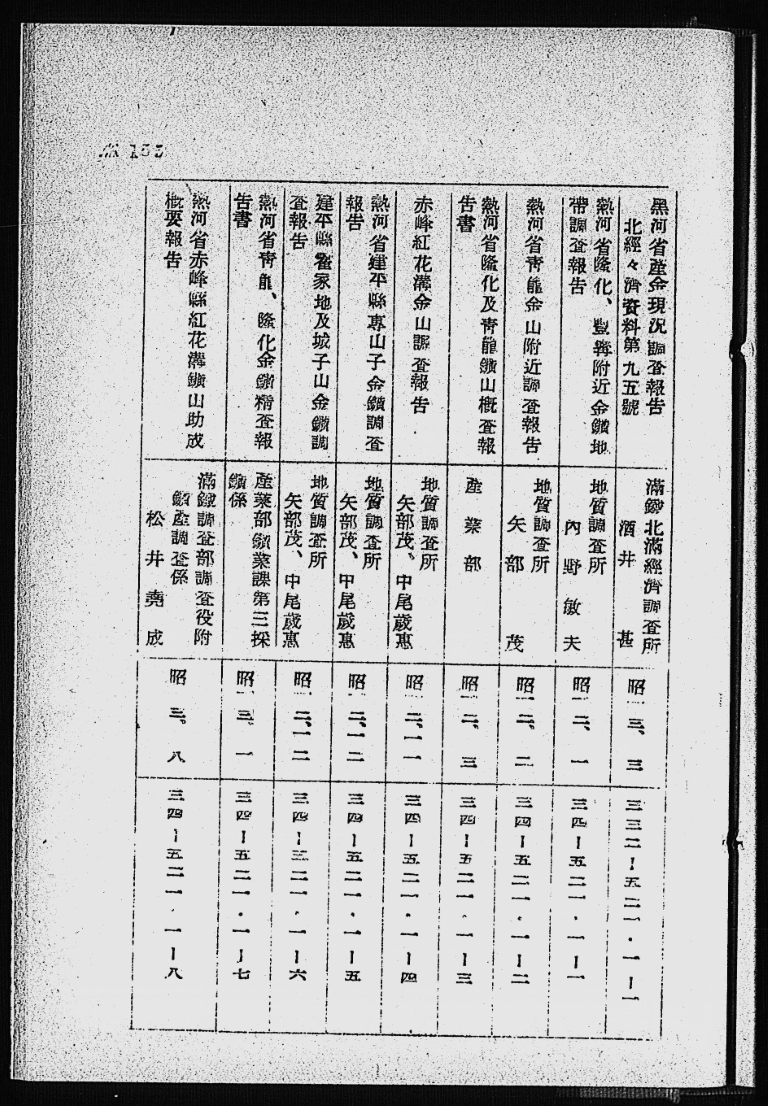 黑河省產金現況調査報告
北經々濟資料第九五號
滿鐵北滿經濟調査所
酒井 甚
昭一三、三
三三二ー五二一・一ー一
熱河省隆化、豐寧附近金鑛地
帶調査報告
地質調査所
內野敏夫
昭一二、一
三四ー五二一・一ー一
熱河省靑龍金山附近調査報告
地質調査所
矢部 茂
昭一二、二
三四ー五二一・一ー二
熱河省隆化及靑龍鑛山槪査報
告書
產業部
昭一二、三
三四ー五二一・一ー三
赤峰紅花溝金山調査報告
地質調査所
矢部茂、中尾歲惠
昭一二、一一
三四ー五二一・一ー四
熱河省建平縣專山子金鑛調査
報告
地質調査所
矢部茂、甲尾歲惠
昭一二、一二
三四ー五二一・一ー五
建平縣 家地及城子山金鑛調
査報告
地質調査所
矢部茂、中尾歲惠
昭一二、一二
三四ー三二一・一ー六
熱河省靑龍、隆化金鑛精査報
告書
產業部鑛業課第三採
鑛係
昭一三、一
三四ー五二一・一ー七
熱河省赤峰縣紅花溝鑛山助成
槪要報告
滿鐵調査部調査役附
鑛產調査係
松井堯成
昭一三、八
三四ー五二一・一ー八